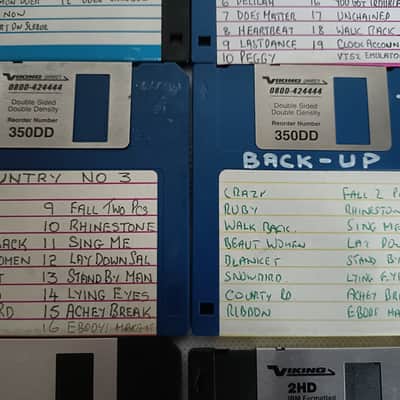 12
NOW
6 DELILAH 16
7 DOES MATTER 17 UNCHAINED
8 HEARTBEAT 18 WALK BACK
9 LAST DANCE 19
10 PEGGY
VIKING DIRECT
0800-424444
Double Sided
Double Density
Reorder Number
350DD
VIKING DIRECT
0800-424444
Double Sided
Double Density
Reorder Number
350DD
UNTRY NO 3
9 FALL TWO PCS
10 RHINESTONE
ACK 11 SING ME
OMEN 12 LAY DOWN SAL
T 13 STAND BY MAN
D 14 LYING EYES
RD 15 ACHEY BREAK
16
BACK-UP
CRAZY FALL 2 P
RUBY RHINESTON
WALK BACK SING ME
BEAUT WOMEN LAY DO
BLANKET STAND B
SNOWBIRD LYING EYE
COUNTY RD ACHEY BRE
RIBBON
VIKING
2HD
IBM Formatted